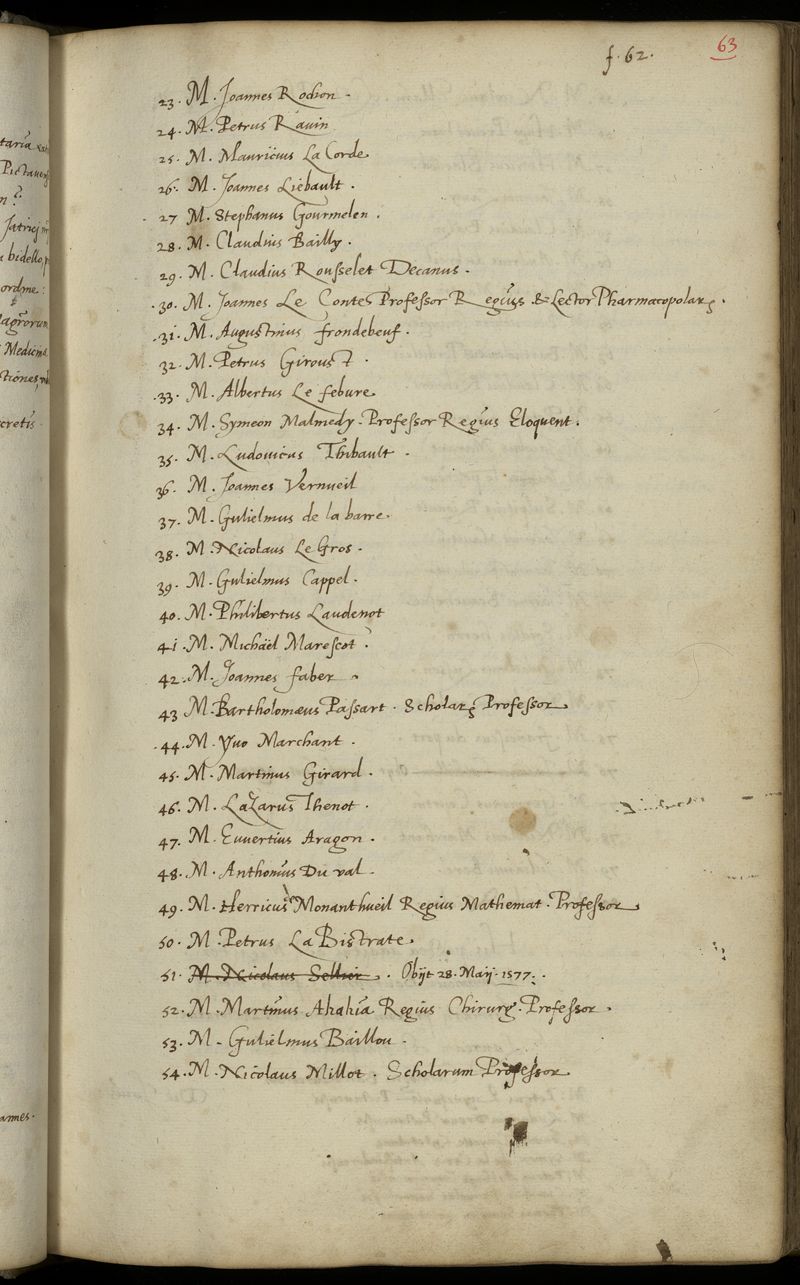 f. 62.
63
23. M. Joannes Rochon.
24. M. Petrus Ravin
25. M. Mauricius La Corde
26. M. Joannes Liebault.
27 M. Stephanus Gourmelen.
28. M. Claudius Bailly.
29. M. Claudius Rousselet Decanus.
30. M. Joannes Le Conte Professor Regius & Lector Pharmacopolar.
31. M. Augustinus frondebeuf.
32. M. Petrus Giroust.
33. M. Albertus Le febure
34. M. Symeon Malmedy. Professor Regius Eloquent.
35. M. Ludovicus Thibault.
36. M. Joannes Vernueil
37. M. Gulielmus de la barre.
38. M. Nicolaus Le Gros.
39. M. Gulielmus Cappel.
40. M. Philibertus Laudenot
41. M. Michaël Marescot.
42. M. Joannes faber
43 M. Bartholomæus Passart. Scholar. Professor
44. M. Yvo Marchant.
45. M. Martinus Girard.
46. M. Lazarus Thenot.
47. M. Euvertius Aragon.
48. M. Anthonius Du val.
49. M. Henricus Monanthueil Regius Mathemat. Professor
50. M. Petrus La Bistrate.
51. M. Nicolaus Sellier. Obijt 28. Maij. 1577.
52. M. Martinus Akakia Regius Chirurg. Professor.
53. M. Gulielmus Baillou.
54. M. Nicolaus Millot. Scholarum Professor.
taria
ordine:
Medicina
cretis.
annes.